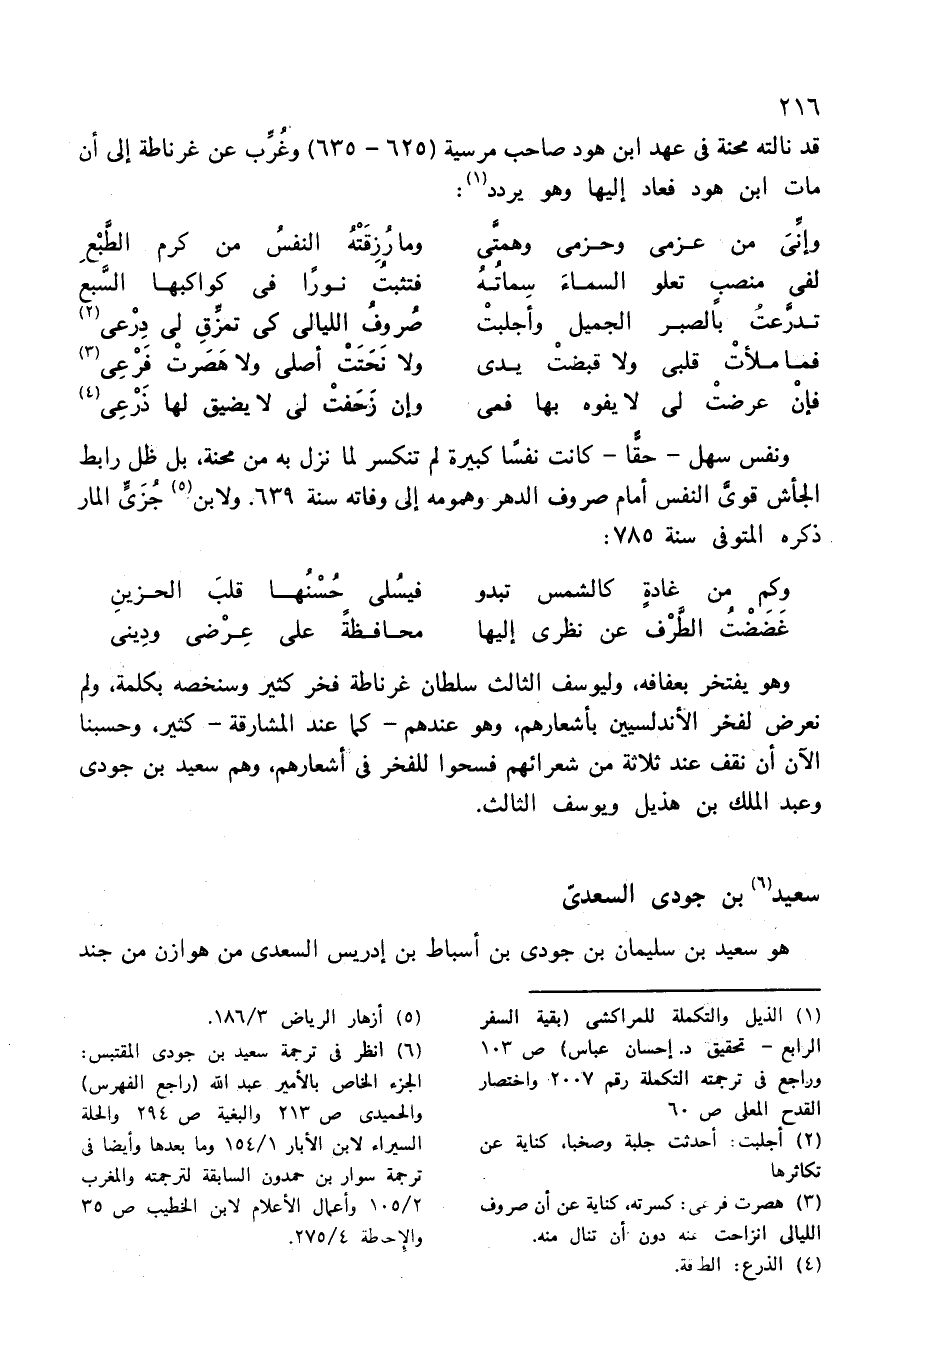 ٢١٦
قد نالته محنة فى عهد ابن هود صاحب مرسية (٦٢٥ – ٦٣٥) وغُرِّب عن غرناطة إلى أن
مات ابن هود فعاد إليها وهو يردد(١):
وإنِّىَ من عزمى وحزمى وهمتَّى وما رُزِقَتْهُ النفسُ من كرم الطَّبْعِ
لفى منصبٍ تعلو السماءَ سِماتُهُ فتثبتُ نورًا فى كواكبها السَّبعِ
تدرَّعتُ بالصبر الجميل وأجلبتْ صُروفُ الليالى كى تمزِّق لى دِرْعى(٢)
فما ملأتْ قلبى ولا قبضتْ يدى ولا نَحَتَتْ أصلى ولا هَصَرتْ فَرْعِى(٣)
فإنْ عرضتْ لى لا يفوه بها فمى وإن زَحَفتْ لى لا يضيق لها ذَرْعِى(٤)
ونفس سهل – حقًّا – كانت نفسًا كبيرة لم تنكسر لما نزل به من محنة، بل ظل رابط
الجأش قوىَّ النفس أمام صروف الدهر وهمومه إلى وفاته سنة ٦٣٩. ولابن(٥) جُزَىٍّ المار
ذكره المتوفى سنة ٧٨٥:
وكم من غادةٍ كالشمس تبدو فيسُلى حُسْنُها قلبَ الحزينِ
غَضَضْتُ الطَّرْف عن نظرى إليها محافظةً على عِرْضى ودِينى
وهو يفتخر بعفافه، وليوسف الثالث سلطان غرناطة فخر كثير وسنخصه بكلمة، ولم
نعرض لفخر الأندلسيين بأشعارهم، وهو عندهم – كما عند المشارقة – كثير، وحسبنا
الآن أن نقف عند ثلاثة من شعرائهم فسحوا للفخر فى أشعارهم، وهم سعيد بن جودى
وعبد الملك بن هذيل ويوسف الثالث.
سعيد(٦) بن جودى السعدىّ
هو سعيد بن سليمان بن جودى بن أسباط بن إدريس السعدى من هوازن من جند
(١) الذيل والتكملة للمراكشى (بقية السفر
الرابع – تحقيق د. إحسان عباس) ص ١٠٣
وراجع فى ترجمته التكملة رقم ٢٠٠٧ واختصار
القدح المعلى ص ٦٠
(٢) أجلبت: أحدثت جلبة وصخبا، كناية عن
تكاثرها
(٣) هصرت فرعى: كسرته، كناية عن أن صروف
الليالى انزاحت عنه دون أن تنال منه.
(٤) الذرع: الطاقة.
(٥) أزهار الرياض ١٨٦/٣.
(٦) انظر فى ترجمة سعيد بن جودى المقتبس:
الجزء الخاص بالأمير عبد الله (راجع الفهرس)
والحميدى ص ٢١٣ والبغية ص ٢٩٤ والحلة
السيراء لابن الأبار ١٥٤/١ وما بعدها وأيضا فى
ترجمة سوار بن حمدون السابقة لترجمته والمغرب
١٠٥/٢ وأعمال الأعلام لابن الخطيب ص ٣٥
والإحاطة ٢٧٥/٤.